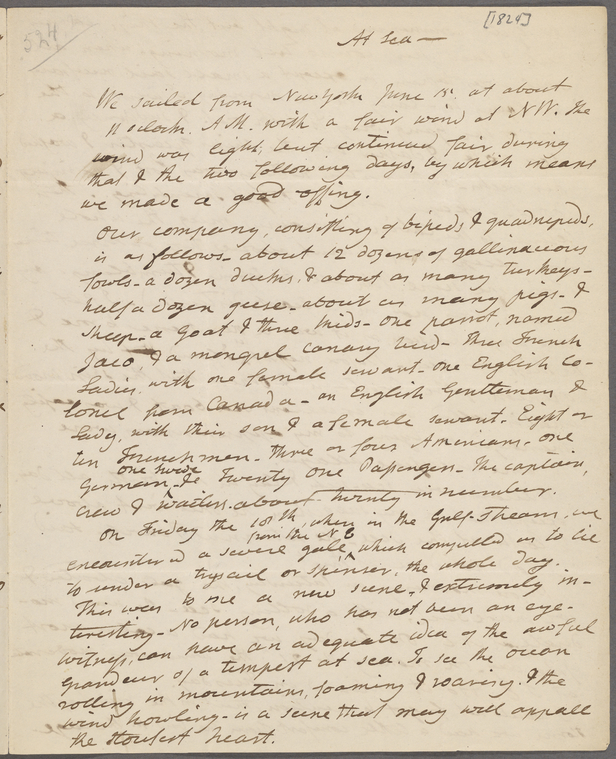 524
[1829]
At Sea —
We sailed from New York June 1st. at about
11 oclock. A.M. with a fair wind at N.W. The
wind was light, but continued fair during
that & the two following days, by which means
we made a good offing.
Our company, consisting of bipeds & quadrupeds,
is as follows - about 12 dozens of gallinaceous
fowls - a dozen ducks, & about as many turkeys -
half a dozen geese - about as many pigs - &
sheep - a goat & three kids - one parrot, named
Jaco, & a mongrel canary bird - three French
Ladies with one female servant - one English Co-
lonel from Canada - an English Gentleman &
Lady, with their son & a female servant - Eight or
ten Frenchmen - three or four Americans - one
one Swede
German - Twenty one Passengers - the captain,
crew & waiters about twenty in number.
On Friday the when in the Gulf-Stream, we
from the N E
encountered a severe gale, which compelled us to lie
to under a trysail or spenser, the whole day.
This was to me a new scene, & extremely in-
teresting - No person, who has not been an eye-
witness, can have an adequate idea of the awful
grandeur of a tempest at sea. To see the ocean
rolling in mountains, foaming & roaring, & the
wind howling - is a scene that may well appall
the stoutest heart.